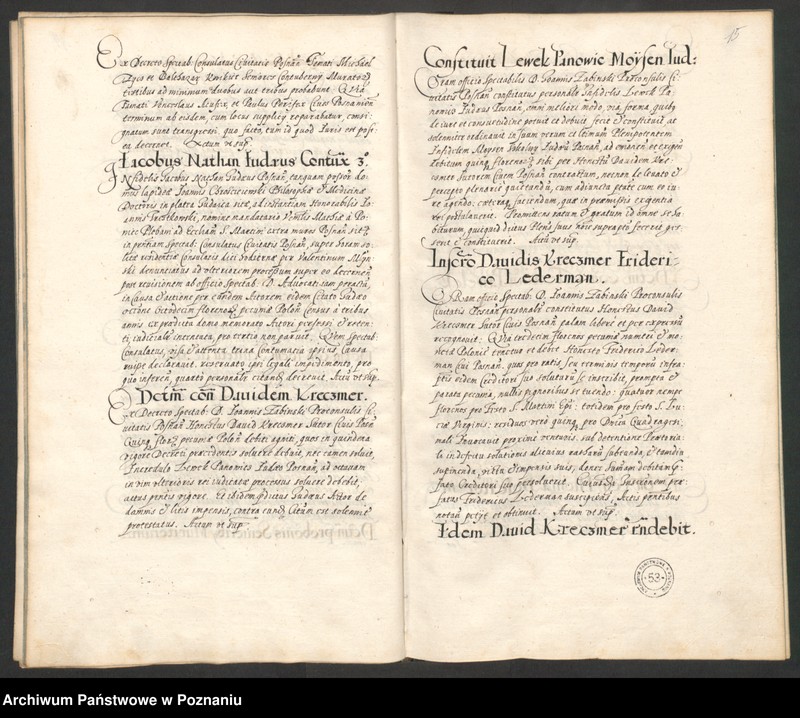 Ex Decreto Spectab: Consulatus Civitatis Posnan: Famati Michael
testibus ad minimum duobus aut tribus probabunt. Quia
Famati Venceslaus et Paulus Cives Posnanien
terminum ab eisdem, cum locus supplicy reparabatur, consi-
gnatum sunt transgressi quo facto, tum id quod Iuris est post-
ea decernet. Actum ut sup.
Jacobus Nathan Iudæus Contux 3º.
Infidelis Jacobus Nathan Iudæus Posnan, tanquam possor do-
mus lapideæ Ioannis Chrosciewski Philosophiæ et Medicinæ
Doctoris in platea Iudaica sitæ, ad instantiam Honorabilis Io-
annis nomine mandatario Venlis Mathiæ à Po-
niec Plebani ad Ecclam S. Martini extra muros Posnan sitæ
in pntiam Spectab: Consulatus Civitatis Posnan, super horam so-
litæ residentiæ Consularis dici hodiernæ per Valentinum
denunciatus ad ulteriorem processum supra eo decernen
post revisionem ab officio Spectab: D. Advocati iam peractá
in causa et actione per eundem Actorem eidem Citato Iudæo
octone octodecim florenos pecuniæ Polon Census à tribus
annis ex prædicta domo memorato Actori
ti iudicialr intentata, pro tertio non paruit. Quem Spectab:
Consulatus, visa et attenta terna Contumacia ipsius, Causa
cuisse declarauit. reseruato ipsi legali impedimento, pro
quo inferen, quarto personalr citand decreuit. Actu ut sup.
Dctm con Dauidem Kreczmer.
Ex Decreto Spectab: D. Ioannis Zabinski Proconsulis Ci-
vitatis Posnan Honestus David Kreczmer Sutor Ciuis Posn
Quinq florz pecuniæ Polon debiti agniti, quos in quindena
vigore Decreti præcedentis soluere debuit, nec tamen soluit,
Incredulo Lewek Panowicz Iudæo Posnan, ad octauam
in vim ulterioris rei iudicatæ processus soluere debebit,
actus pntis vigore. Et ibidem pdictus Iudæus Actor de
damnis et litis impensis, contra eund Citum est solenniter
protestatus. Actum ut sup.
15
Constituit Lewek Panowic Moÿsen Iud:
Coram officio Spectabilis D. Ioannis Zabinski Proconsulis Ci-
vitatis Posnan constitutus personalr Infidelis Lewek Pa-
nowicz Iudæus Posnan, omni meliori modo, via, forma, quibq
de iure et consuetudine potuit ac debuit fecit et constituit ac
solenniter ordinauit in suum verum et legitimum Plenipotentem
Infidelem Moysen Iudæu Posnan, ad emonen et exigen
debitum quinq florenoz sibi per Honestu Dauidem Krec-
zmer Sutorem Ciuem Posnan contractum, necnon de leuato et
percepto plenarie quietandu, cum adiuncta ptate cum eo iu-
re agendo: cætraq faciendum, quæ in præmissis exigentia
rei postulauerit. Promittens ratum et gratum id omne se ha-
biturum, quicquid dictus Plens suus nõie suprapto fecerit ges-
serit et constituerit. Actu ut sup.
Inscro Dauidis Kreczmer Frideri-
co Lederman.
Coram officio Spectab: D. Ioannis Zabinski Proconsulis
Ciuitatis Posnan personalr constitutus Honestus Dauid
Kreczmer Sutor Ciuis Posnan palam libere et per expressu
recognouit: Quia tredecim florenos pecuniæ numeri et mo-
netæ Polonic tenetur et debet Honesto Friderico Leder-
man Ciui Posnan. quos pro ratis seu terminis temporu infra-
ptis eidem Creditori suo soluturu se inscribit, prompta et
parata pecunia, nullis pignoribus se tuendo: quatuor nempe
florenos pro Festo S. Martini Epi: totidem pro festo S. Lu-
ciæ Virginis: residuos vero quinq, pro Dnica Quadragesi-
mali Inuocauit proxime venturis. sub detentione Prætoria-
li in defectu solutionis alicuius ratharu subeunda, et tamdiu
supinenda, victu et impensis suis; donec sumam debitam p-
fato Creditori suo persoluerit. Cuius et Inscrionem per
fatus Fridericus Lederman suscipiens, Actis pntibus
notari petyt et obtinuit. Actum ut sup.
Idem Dauid Kreczmer rñdebit.
53
Archiwum Państwowe w Poznaniu